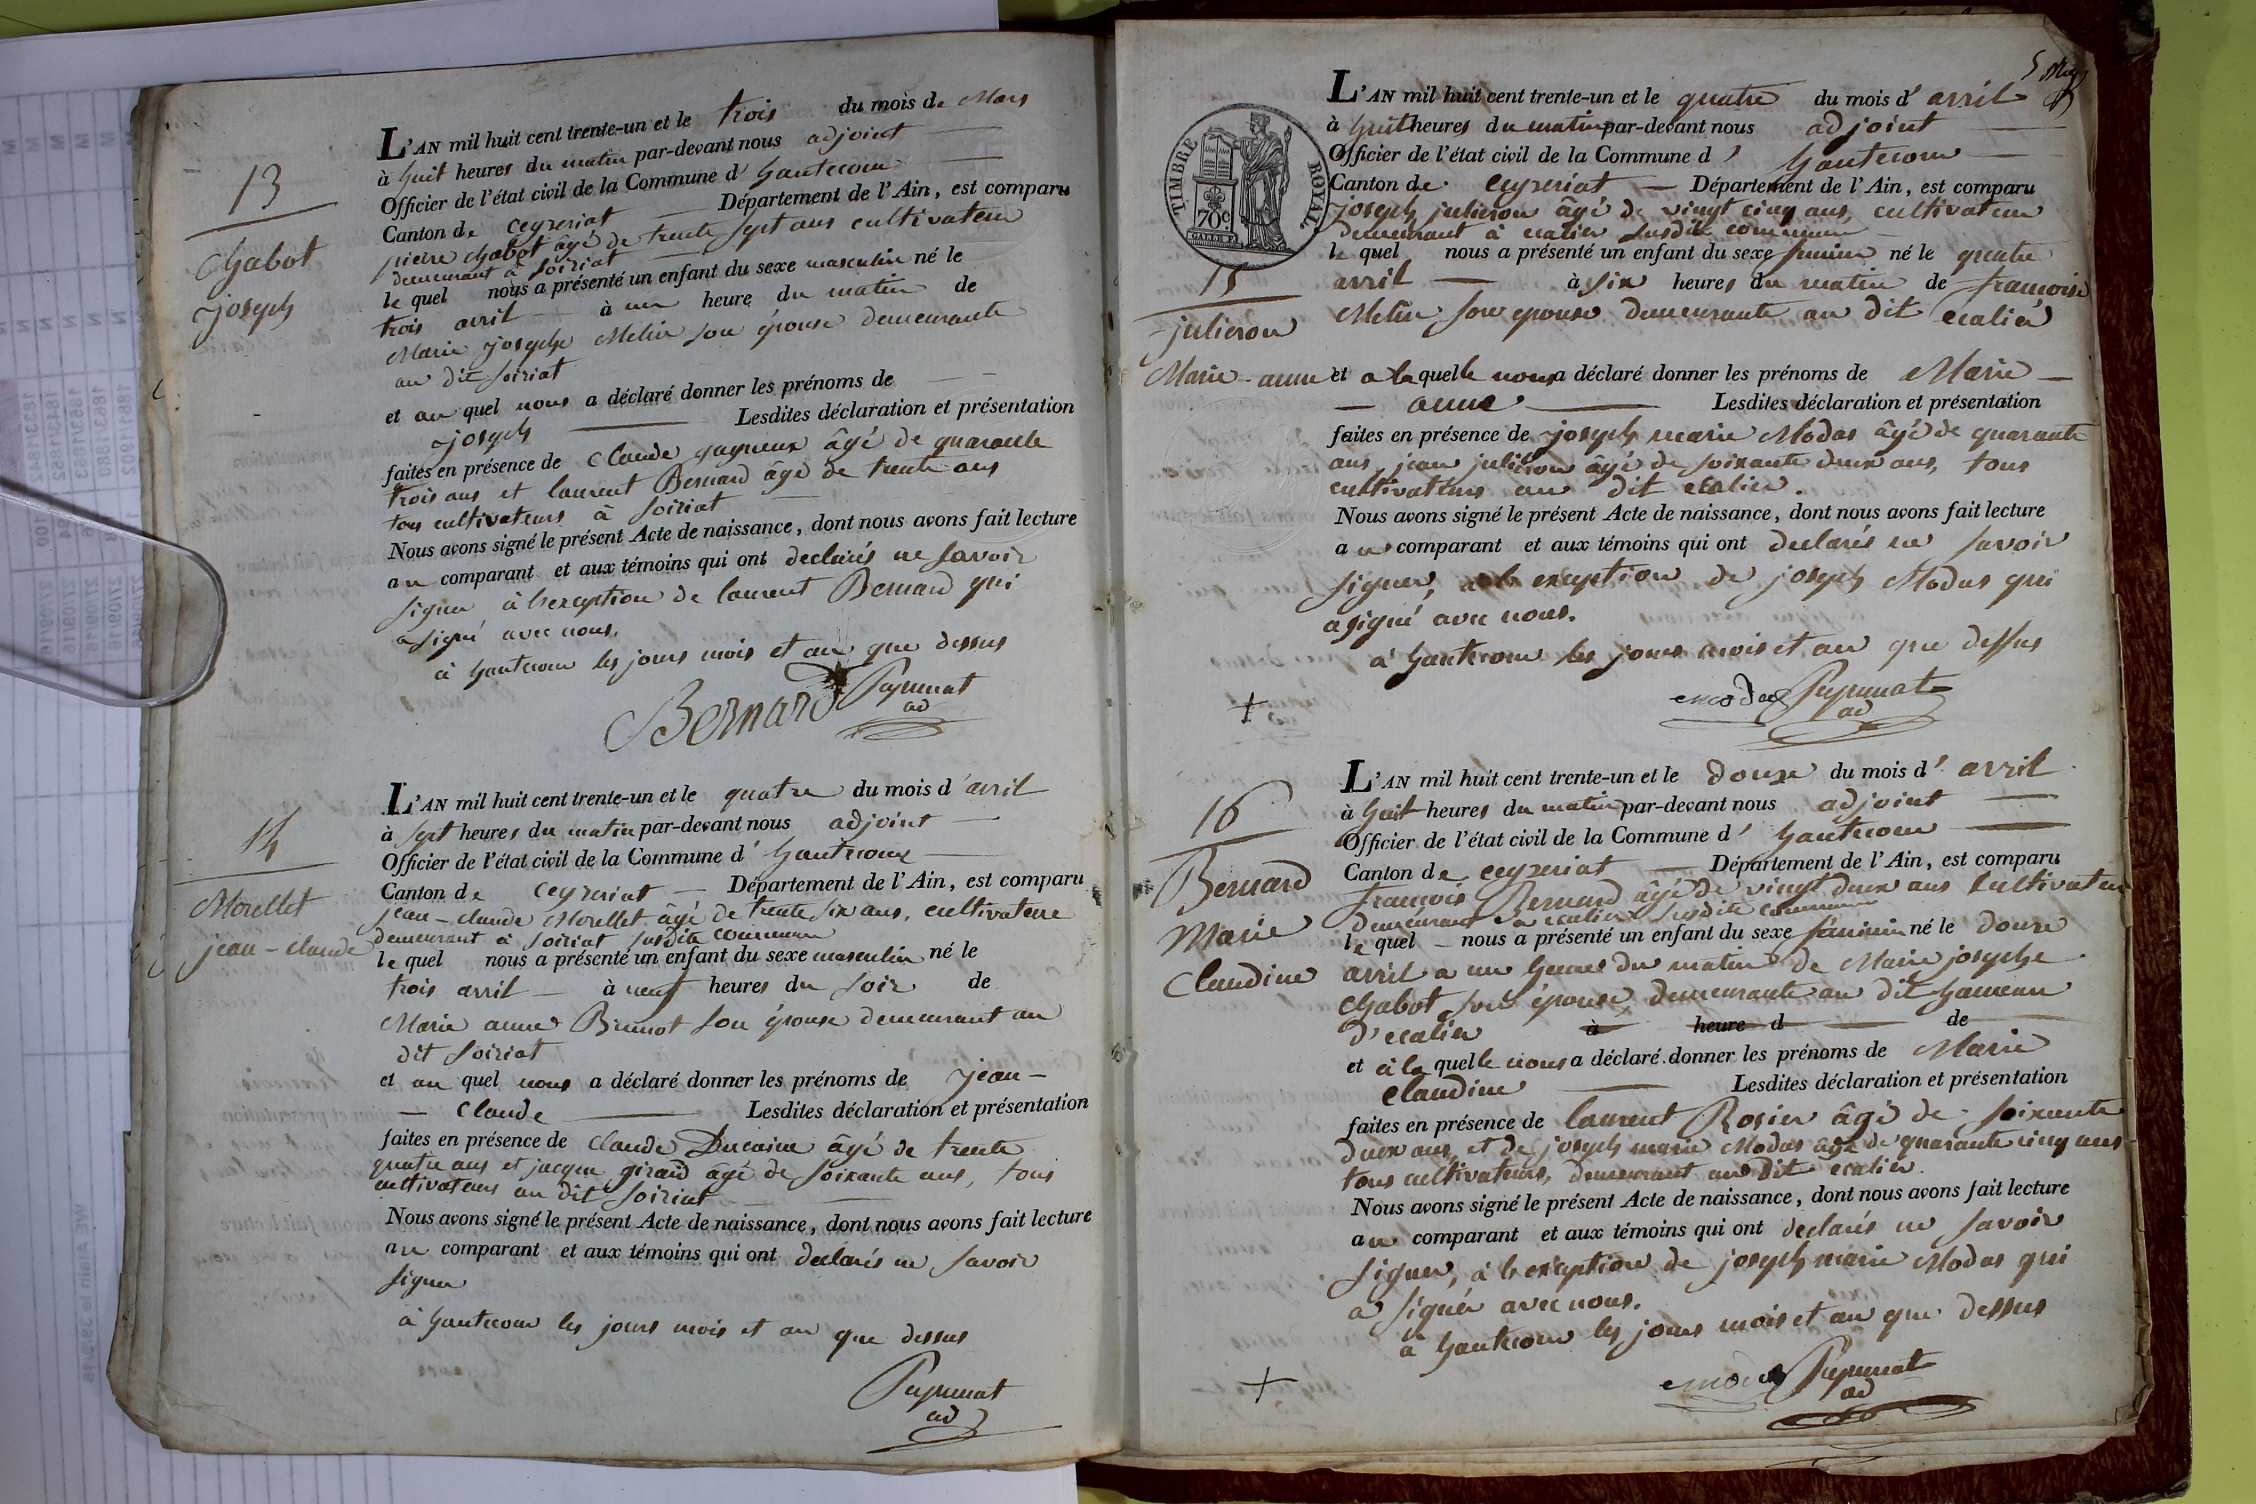 13
Chabot
joseph
L'AN mil huit cent trente-un et le trois du mois de Mars
à huit heures du matin par-devant nous adjoint
Officier de l'état civil de la Commune d' hautecour
Canton de ceyzeriat Département de l'Ain, est comparu
pierre Chabot âgé de trente sept ans cultivateur
demeurant à soiriat
le quel nous a présenté un enfant du sexe masculin né le
trois avril à un heure du matin de
Marie josephe Metin son épouse demeurante
au dit soiriat
et au quel nous a déclaré donner les prénoms de
joseph Lesdites déclaration et présentation
faites en présence de Claude gagneux âgé de quarante
trois ans et laurent Bernard âgé de trente ans
tous cultivateurs à soiriat
Nous avons signé le présent Acte de naissance, dont nous avons fait lecture
au comparant et aux témoins qui ont declarés ne savoir
signer à l'exception de laurent Bernard qui
a signé avec nous.
à hautecour les jours mois et an que dessus
Bernard
ad
14
Morellet
jean-claude
L'AN mil huit cent trente-un et le quatre du mois d'avril
à sept heures du matin par-devant nous adjoint
Officier de l'état civil de la Commune d' hautecour
Canton de ceyzeriat Département de l'Ain, est comparu
jean-claude Morellet âgé de trente six ans, cultivateur
demeurant à soiriat susdite commune
le quel nous a présenté un enfant du sexe masculin né le
trois avril à neuf heures du soir de
Marie anne Brunot son épouse demeurant au
dit soiriat
et au quel nous a déclaré donner les prénoms de jean-
claude Lesdites déclaration et présentation
faites en présence de claude Ducaine âgé de trente
quatre ans et jacque giraud âgé de soixante ans, tous
cultivateurs au dit soiriat
Nous avons signé le présent Acte de naissance, dont nous avons fait lecture
au comparant et aux témoins qui ont declarés ne savoir
signer
à hautecour les jours mois et an que dessus
ad
TIMBRE ROYAL
70c
15
julieron
Marie-anne
L'AN mil huit cent trente-un et le quatre du mois d' avril
à huit heures du matin par-devant nous adjoint
Officier de l'état civil de la Commune d' hautecour
Canton de ceyzeriat Département de l'Ain, est comparu
joseph julieron âgé de vingt cinq ans, cultivateur
demeurant à ecalier susdite commune
le quel nous a présenté un enfant du sexe feminin né le quatre
avril à six heures du matin de francoise
Metin son epouse demeurante au dit ecalier
et a la quelle nous a déclaré donner les prénoms de Marie
anne Lesdites déclaration et présentation
faites en présence de joseph marie Modas âgé de quarante
ans, jean julieron âgé de soixante deux ans, tous
cultivateurs au dit ecalier.
Nous avons signé le présent Acte de naissance, dont nous avons fait lecture
au comparant et aux témoins qui ont declarés ne savoir
signer, a l'exception de joseph Modas qui
a signé avec nous.
à hautecour les jours mois et an que dessus
modas
ad
16
Bernard
Marie
Claudine
L'AN mil huit cent trente-un et le douze du mois d' avril
à huit heures du matin par-devant nous adjoint
Officier de l'état civil de la Commune d' hautecour
Canton de ceyzeriat Département de l'Ain, est comparu
francois Bernard âgé de vingt deux ans cultivateur
demeurant a ecalier susdite commune
le quel nous a présenté un enfant du sexe féminin né le douze
avril a un heures du matin de Marie josephe
Chabot son épouse demeurante au dit hameau
d'ecalier à heure d de
et à la quelle nous a déclaré donner les prénoms de Marie
Claudine Lesdites déclaration et présentation
faites en présence de laurent Rosier âgé de soixante
deux ans, et de joseph marie Modas age de quarante cinq ans
tous cultivateurs, demeurant au dit ecalier
Nous avons signé le présent Acte de naissance, dont nous avons fait lecture
au comparant et aux témoins qui ont declarés ne savoir
signer, à l'exception de joseph marie Modas qui
a signér avec nous.
a hautecour les jours mois et an que dessus
ad